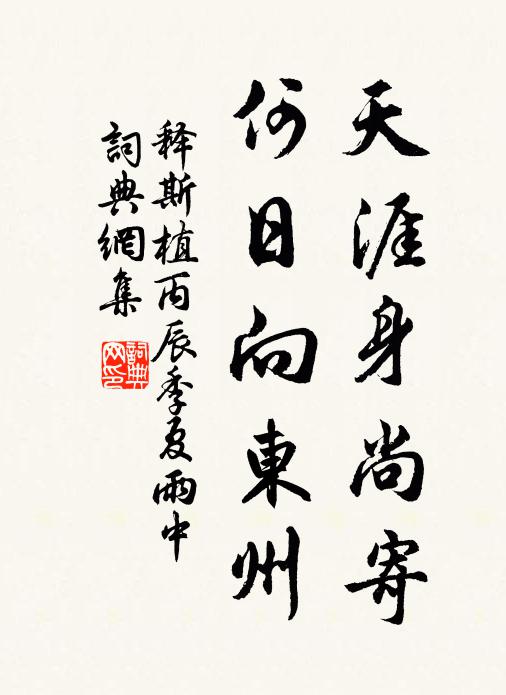 天涯身尚寄
何日向東州
释斯植丙辰季夏雨中
詞典網集
詞典网印